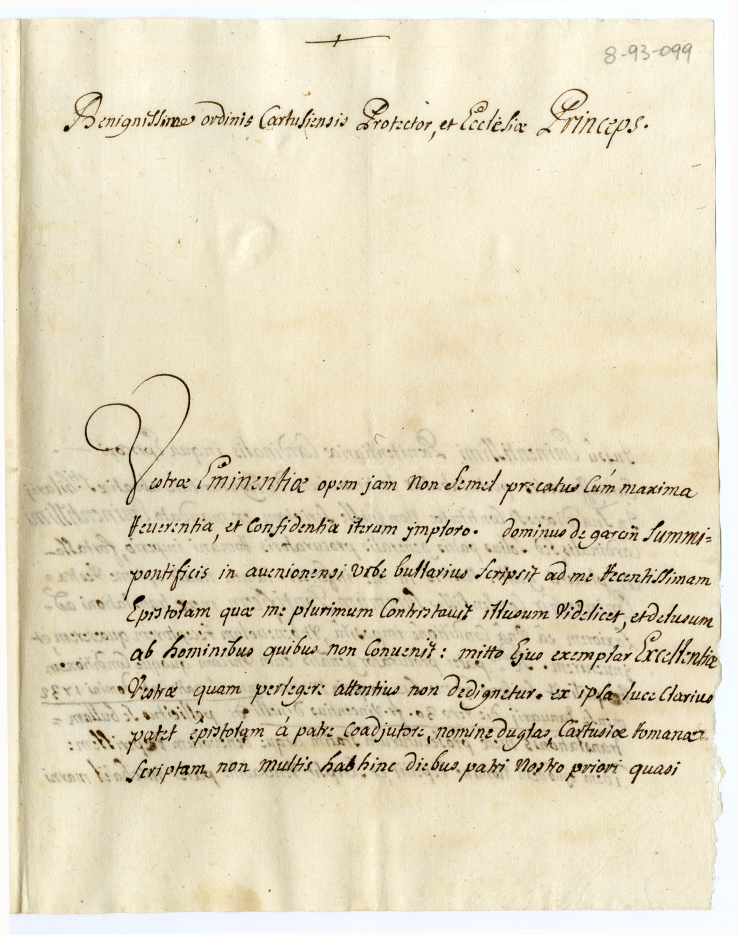 8-93-099
Benignissime ordinis Cartusiensis Protector, et Ecclesiæ Princeps.
Vestræ Eminentiæ opem jam non semel precatus Cúm maxima
reverentia, et Confidentia iterum ymploro. dominus de garcin Summi=
pontificis in avenionensi Urbe bullarius scripsit ad me recentissimam
Epistolam quæ me plurimum Contristavit illusum videlicet, et delusum
ab hominibus quibus non Convenit: mitto Ejus exemplar Excellentiæ
Vestræ quam perlegere attentius non dedignetur. ex ipsa luce Clarius
patet epistolam á patre Coadjutore, nomine duglas, Cartusiæ romanæ
scriptam non multis hab hinc diebus patri nostro priori quasi